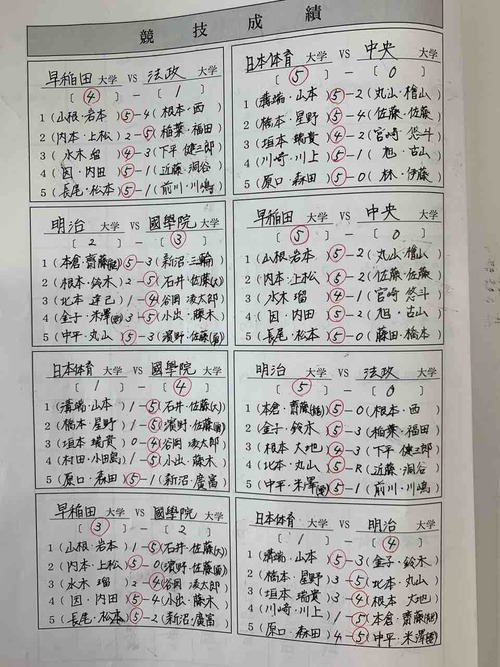 競技成績
早稲田 大学 VS 法政 大学
〔 ④ 〕 - 〔 1 〕
1 (山根・岩本) ⑤-4 (根本・西 )
2 (内本・上松) 2-⑤ (稲葉・福田)
3 ( 水木 瑠 ) ④-3 (下平 健三郎)
4 ( 因・内田 ) ⑤-1 (近藤・洞谷)
5 (長尾・松本) ⑤-1 (前川・川嶋)
明治 大学 VS 國學院 大学
〔 2 〕 - 〔 ③ 〕
1 (本倉・齋藤(龍)) ⑤-3 (新沼・三輪)
2 (根本・鈴木) 2-⑤ (石井・佐藤(大))
3 (北本 達己) 1-④ (谷岡 凌太郎)
4 (金子・米澤(要)) 3-⑤ (小出・藤木)
5 (中平・丸山) ⑤-3 (濱野・佐藤)
日本体育 大学 VS 國學院 大学
〔 1 〕 - 〔 ④ 〕
1 (溝端・山本) 1-⑤ (石井・佐藤(大))
2 (橋本・星野) 1-⑤ (濱野・佐藤)
3 (垣本 瑞貴) 0-④ (谷岡 凌太郎)
4 (村田・小田島) 1-⑤ (小出・藤木)
5 (原口・森田) ⑤-1 (新沼・廣富)
早稲田 大学 VS 國學院 大学
〔 ③ 〕 - 〔 2 〕
1 (山根・岩本) 1-⑤ (石井・佐藤(大))
2 (内本・上松) 0-⑤ (濱野・佐藤)
3 ( 水木 瑠 ) 2-④ (谷岡 凌太郎)
4 ( 因・内田 ) ⑤-4 (小出・藤木)
5 (長尾・松本) ⑤-2 (新沼・廣富)
日本体育 大学 VS 中央 大学
〔 ⑤ 〕 - 〔 0 〕
1 (溝端・山本) ⑤-2 (丸山・檜山)
2 (橋本・星野) ⑤-4 (佐藤・佐藤)
3 (垣本 瑞貴) ④-2 (宮崎 悠斗)
4 (川崎・川上) ⑤-1 ( 旭・古山 )
5 (原口・森田) ⑤-0 ( 林・伊藤 )
早稲田 大学 VS 中央 大学
〔 ⑤ 〕 - 〔 0 〕
1 (山根・岩本) ⑤-2 (丸山・檜山)
2 (内本・上松) ⑤-2 (佐藤・佐藤)
3 ( 水木 瑠 ) ④-1 (宮崎 悠斗)
4 ( 因・内田 ) ⑤-2 ( 旭・古山 )
5 (長尾・松本) ⑤-0 (藤田・橋本)
明治 大学 VS 法政 大学
〔 ⑤ 〕 - 〔 0 〕
1 (本倉・齋藤(龍)) ⑤-0 (根本・西 )
2 (金子・鈴木) ⑤-3 (稲葉・福田)
3 (根本 大地) ④-3 (下平 健三郎)
4 (北本・丸山) ⑤-R (近藤・洞谷)
5 (中平・米澤(要)) ⑤-1 (前川・川嶋)
日本体育 大学 VS 明治 大学
〔 1 〕 - 〔 ④ 〕
1 (溝端・山本) ⑤-3 (金子・鈴木)
2 (橋本・星野) 3-⑤ (北本・丸山)
3 (垣本 瑞貴) 3-④ (根本 大地)
4 (川崎・川上) 1-⑤ (本倉・齋藤(龍))
5 (原口・森田) 4-⑤ (中平・米澤(要))